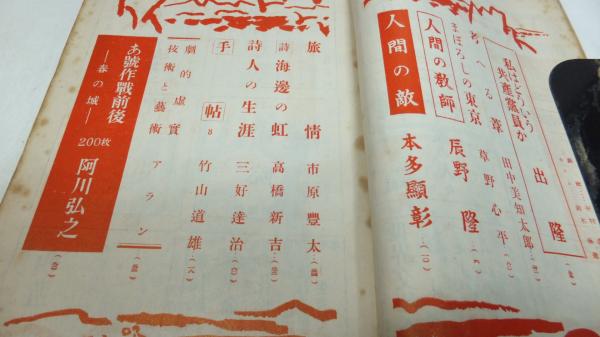 私はどういう
共産黨員か 出隆
考へる葦 田中美知太郎
まぼろしの東京 草野心平
人間の教師 辰野隆
人間の敵 本多顯彰
旅情 市原豐太
詩 海邊の虹 高橋新吉
詩人の生涯 三好達治
手帖 8 竹山道雄
劇的虛實
技術と藝術 アラン
あ號作戰前後
―春の城― 200枚 阿川弘之